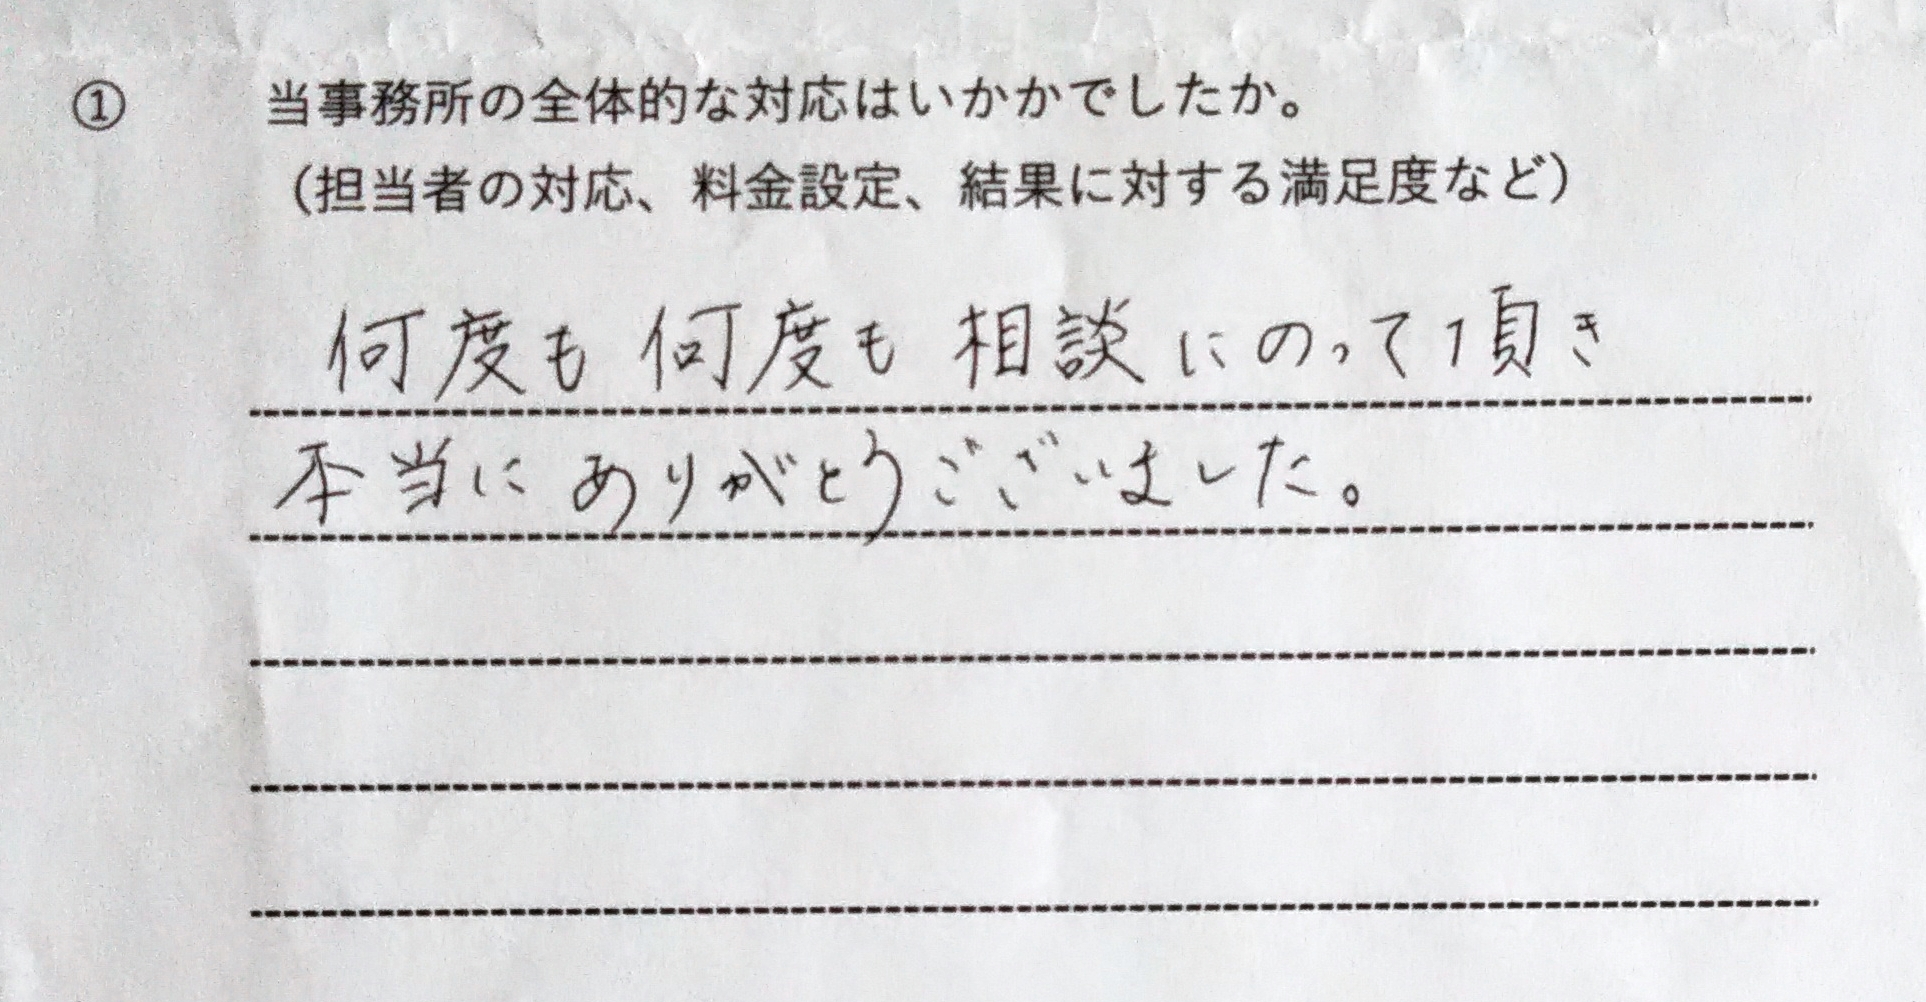 ① 当事務所の全体的な対応はいかかでしたか。
（担当者の対応、料金設定、結果に対する満足度など）
何度も何度も相談にのって頂き
本当にありがとうございました。